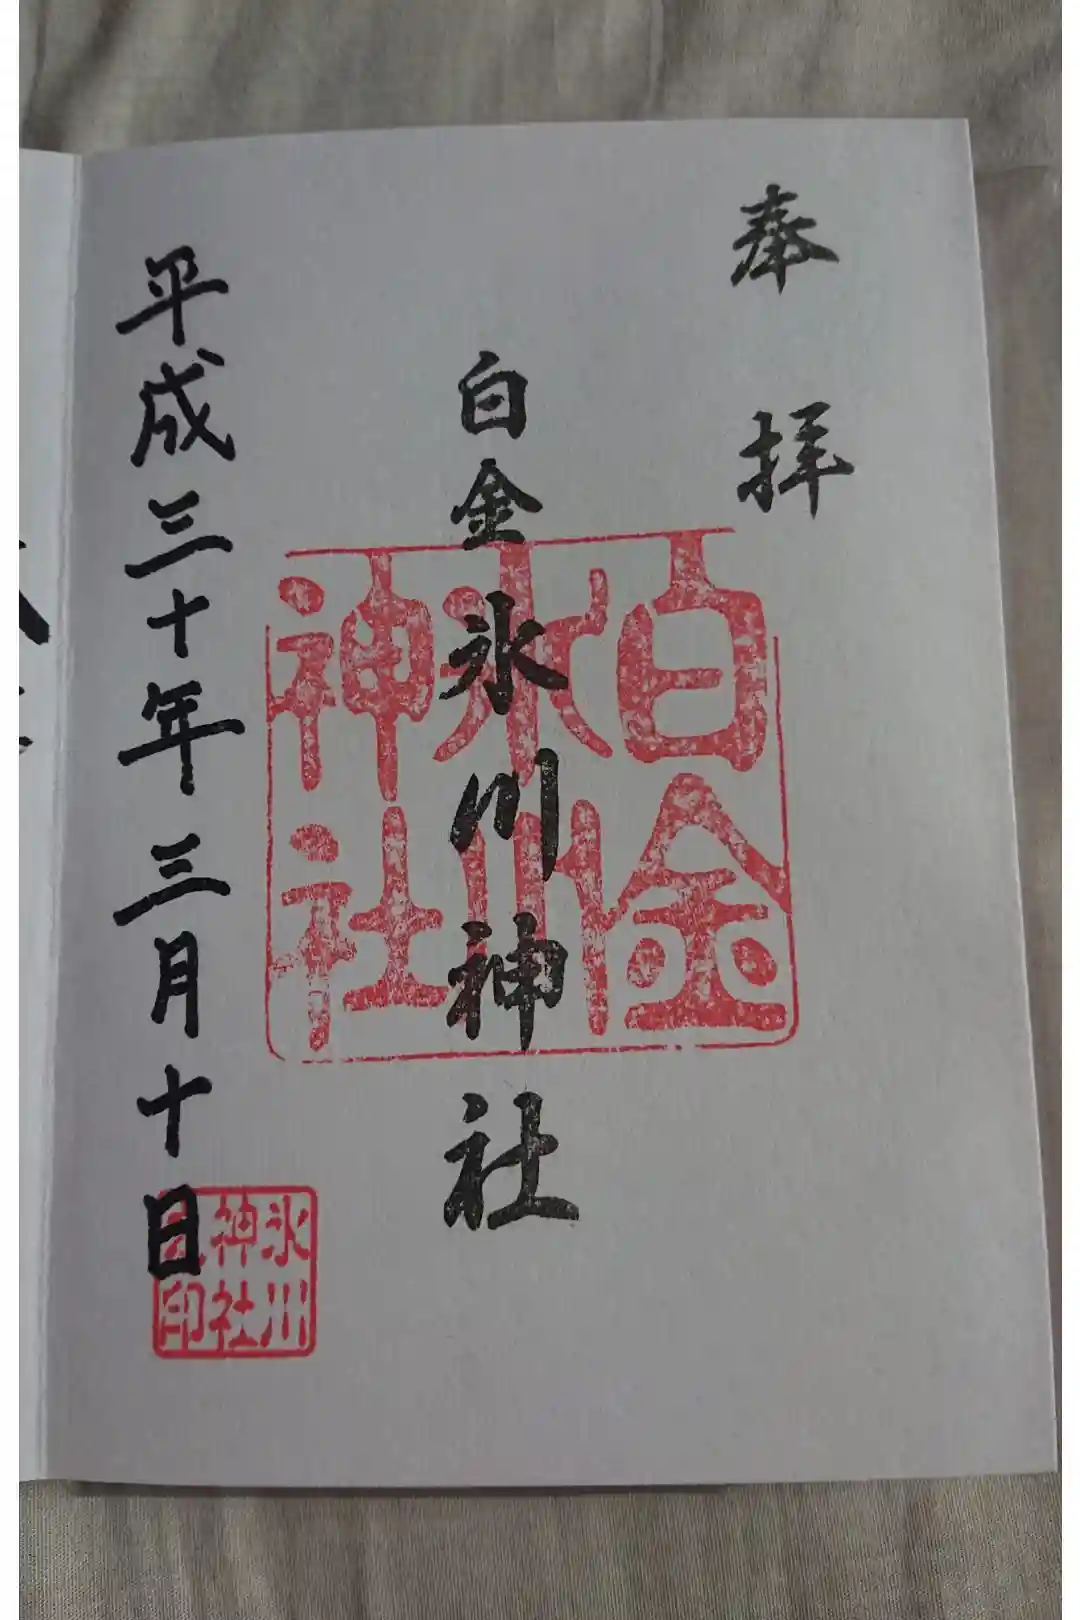 奉拝
白金氷川神社
白金
氷川
神社
平成三十年三月十日
氷川
神社
印